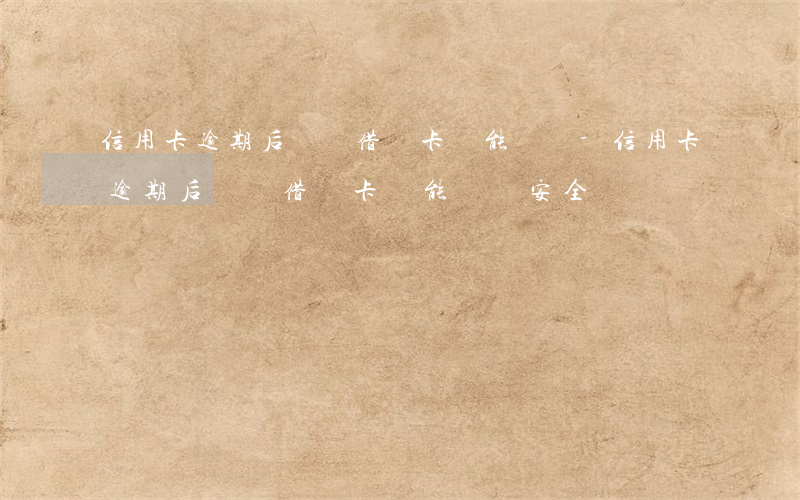 信用卡逾期后 借 卡 能 - 信用卡
逾期后 借 卡 能 安全